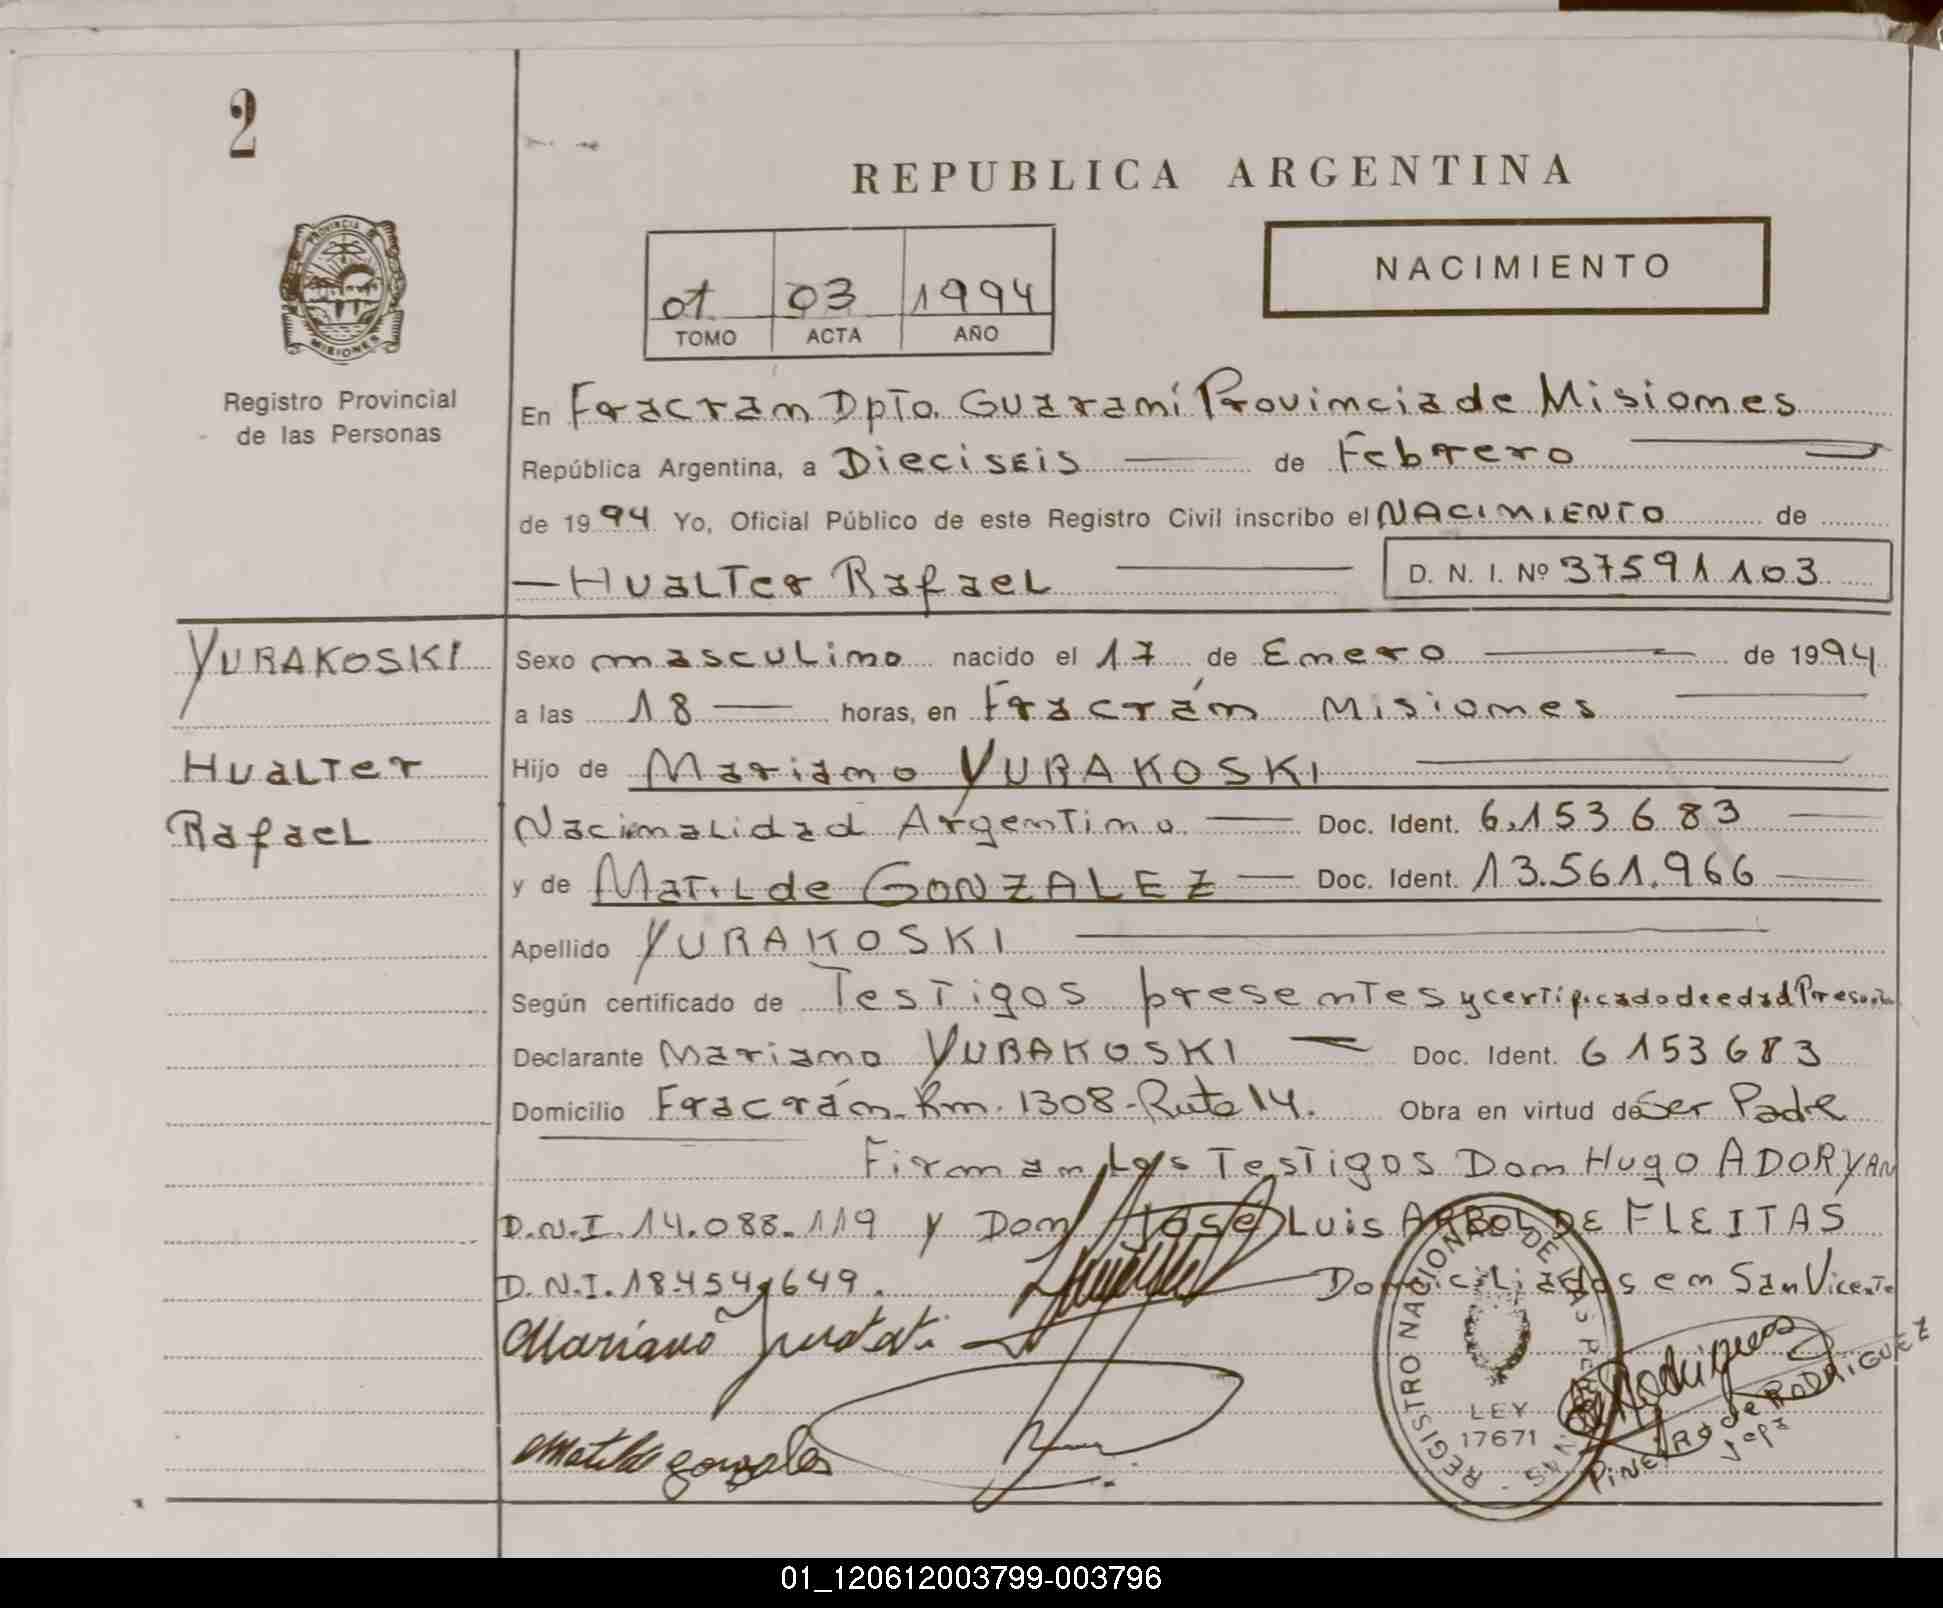 2
REPUBLICA ARGENTINA
PROVINCIA DE
MISIONES
Registro Provincial
de las Personas
01 03 1994
TOMO ACTA AÑO
NACIMIENTO
En Fracran Dpto. Guaraní Provincia de Misiones
República Argentina, a Dieciseis de Febrero
de 1994 Yo, Oficial Público de este Registro Civil inscribo el NACIMIENTO de
Hualter Rafael D. N. I. Nº 37591103
YURAKOSKI
Hualter
Rafael
Sexo masculino nacido el 17 de Enero de 1994
a las 18 horas, en Fracrán Misiones
Hijo de Mariano YURAKOSKI
Nacionalidad Argentina Doc. Ident. 6.153683
y de Matilde GONZALEZ Doc. Ident. 13.561.966
Apellido YURAKOSKI
Según certificado de Testigos presentes y certificado de edad Presunta
Declarante Mariano YURAKOSKI Doc. Ident. 6153683
Domicilio Fracrán. Km. 1308-Ruta 14. Obra en virtud de Ser Padre
Firman Los Testigos Don Hugo ADORYAN
D.N.I. 14.088.119 y Don José Luis ARBOL DE FLEITAS
D.N.I. 18.454.649. Domiciliados en San Vicente
Mariano
Matilde gonzales
REGISTRO NACIONAL DE LAS PERSONAS
LEY
17671
Rodriguez
PIÑEIRO de RODRIGUEZ
Jefa
01_120612003799-003796